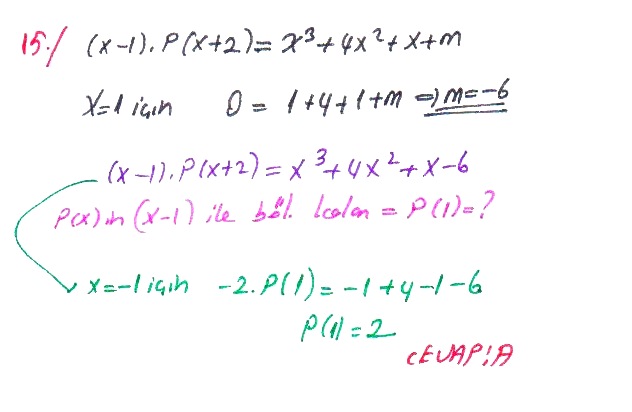 15./ (x-1).P(x+2)=x³+4x²+x+m
X=1 için 0 = 1+4+1+m ⇒ m=-6
(x-1).P(x+2)=x³+4x²+x-6
P(x)in (x-1) ile böl. kalan = P(1)=?
x=-1 için -2.P(1)=-1+4-1-6
P(1)=2
CEVAP:A